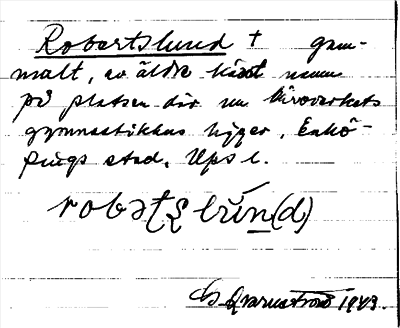 Robertslund † gam-
malt, av äldre känt namn
på platsen där nu läroverkets
gymnastikhus ligger, Enkö-
pings stad, Upsl.
robəʈʂlún(d)
1943.